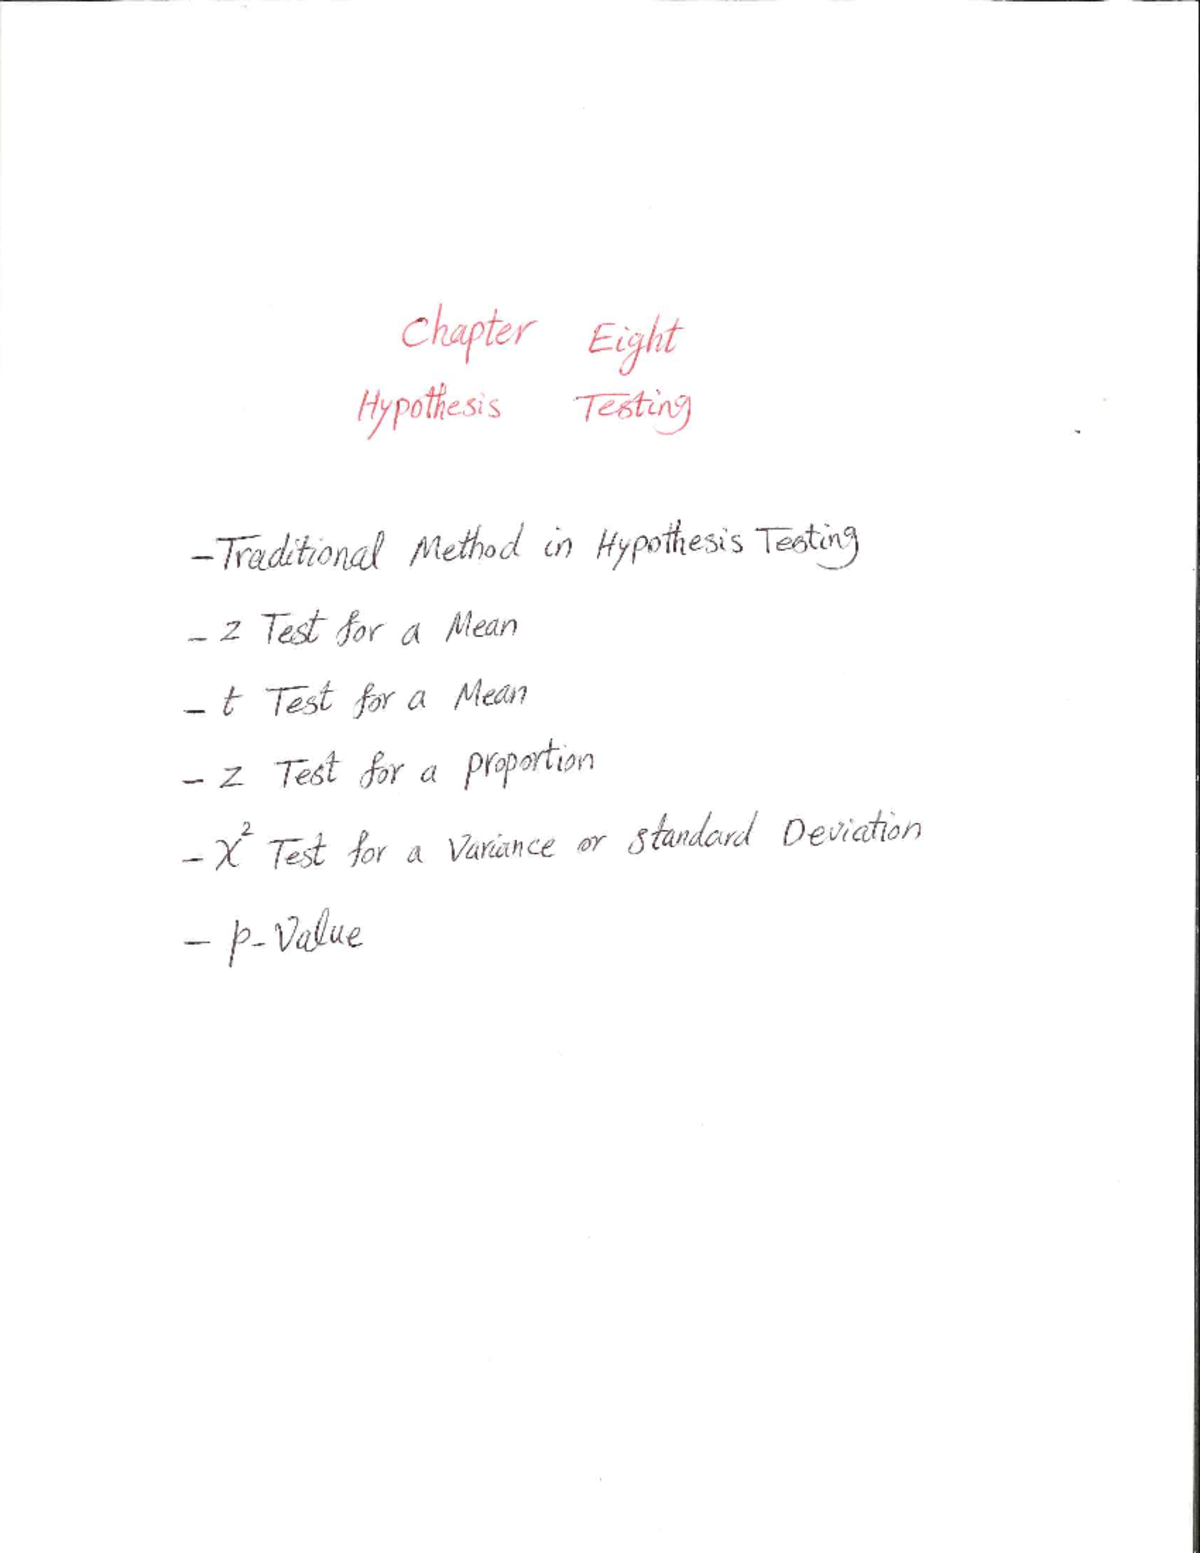 Chapter Eight
Hypothesis Testing
- Traditional Method in Hypothesis Testing
- z Test for a Mean
- t Test for a Mean
- z Test for a proportion
- χ² Test for a Variance or standard Deviation
- p-Value